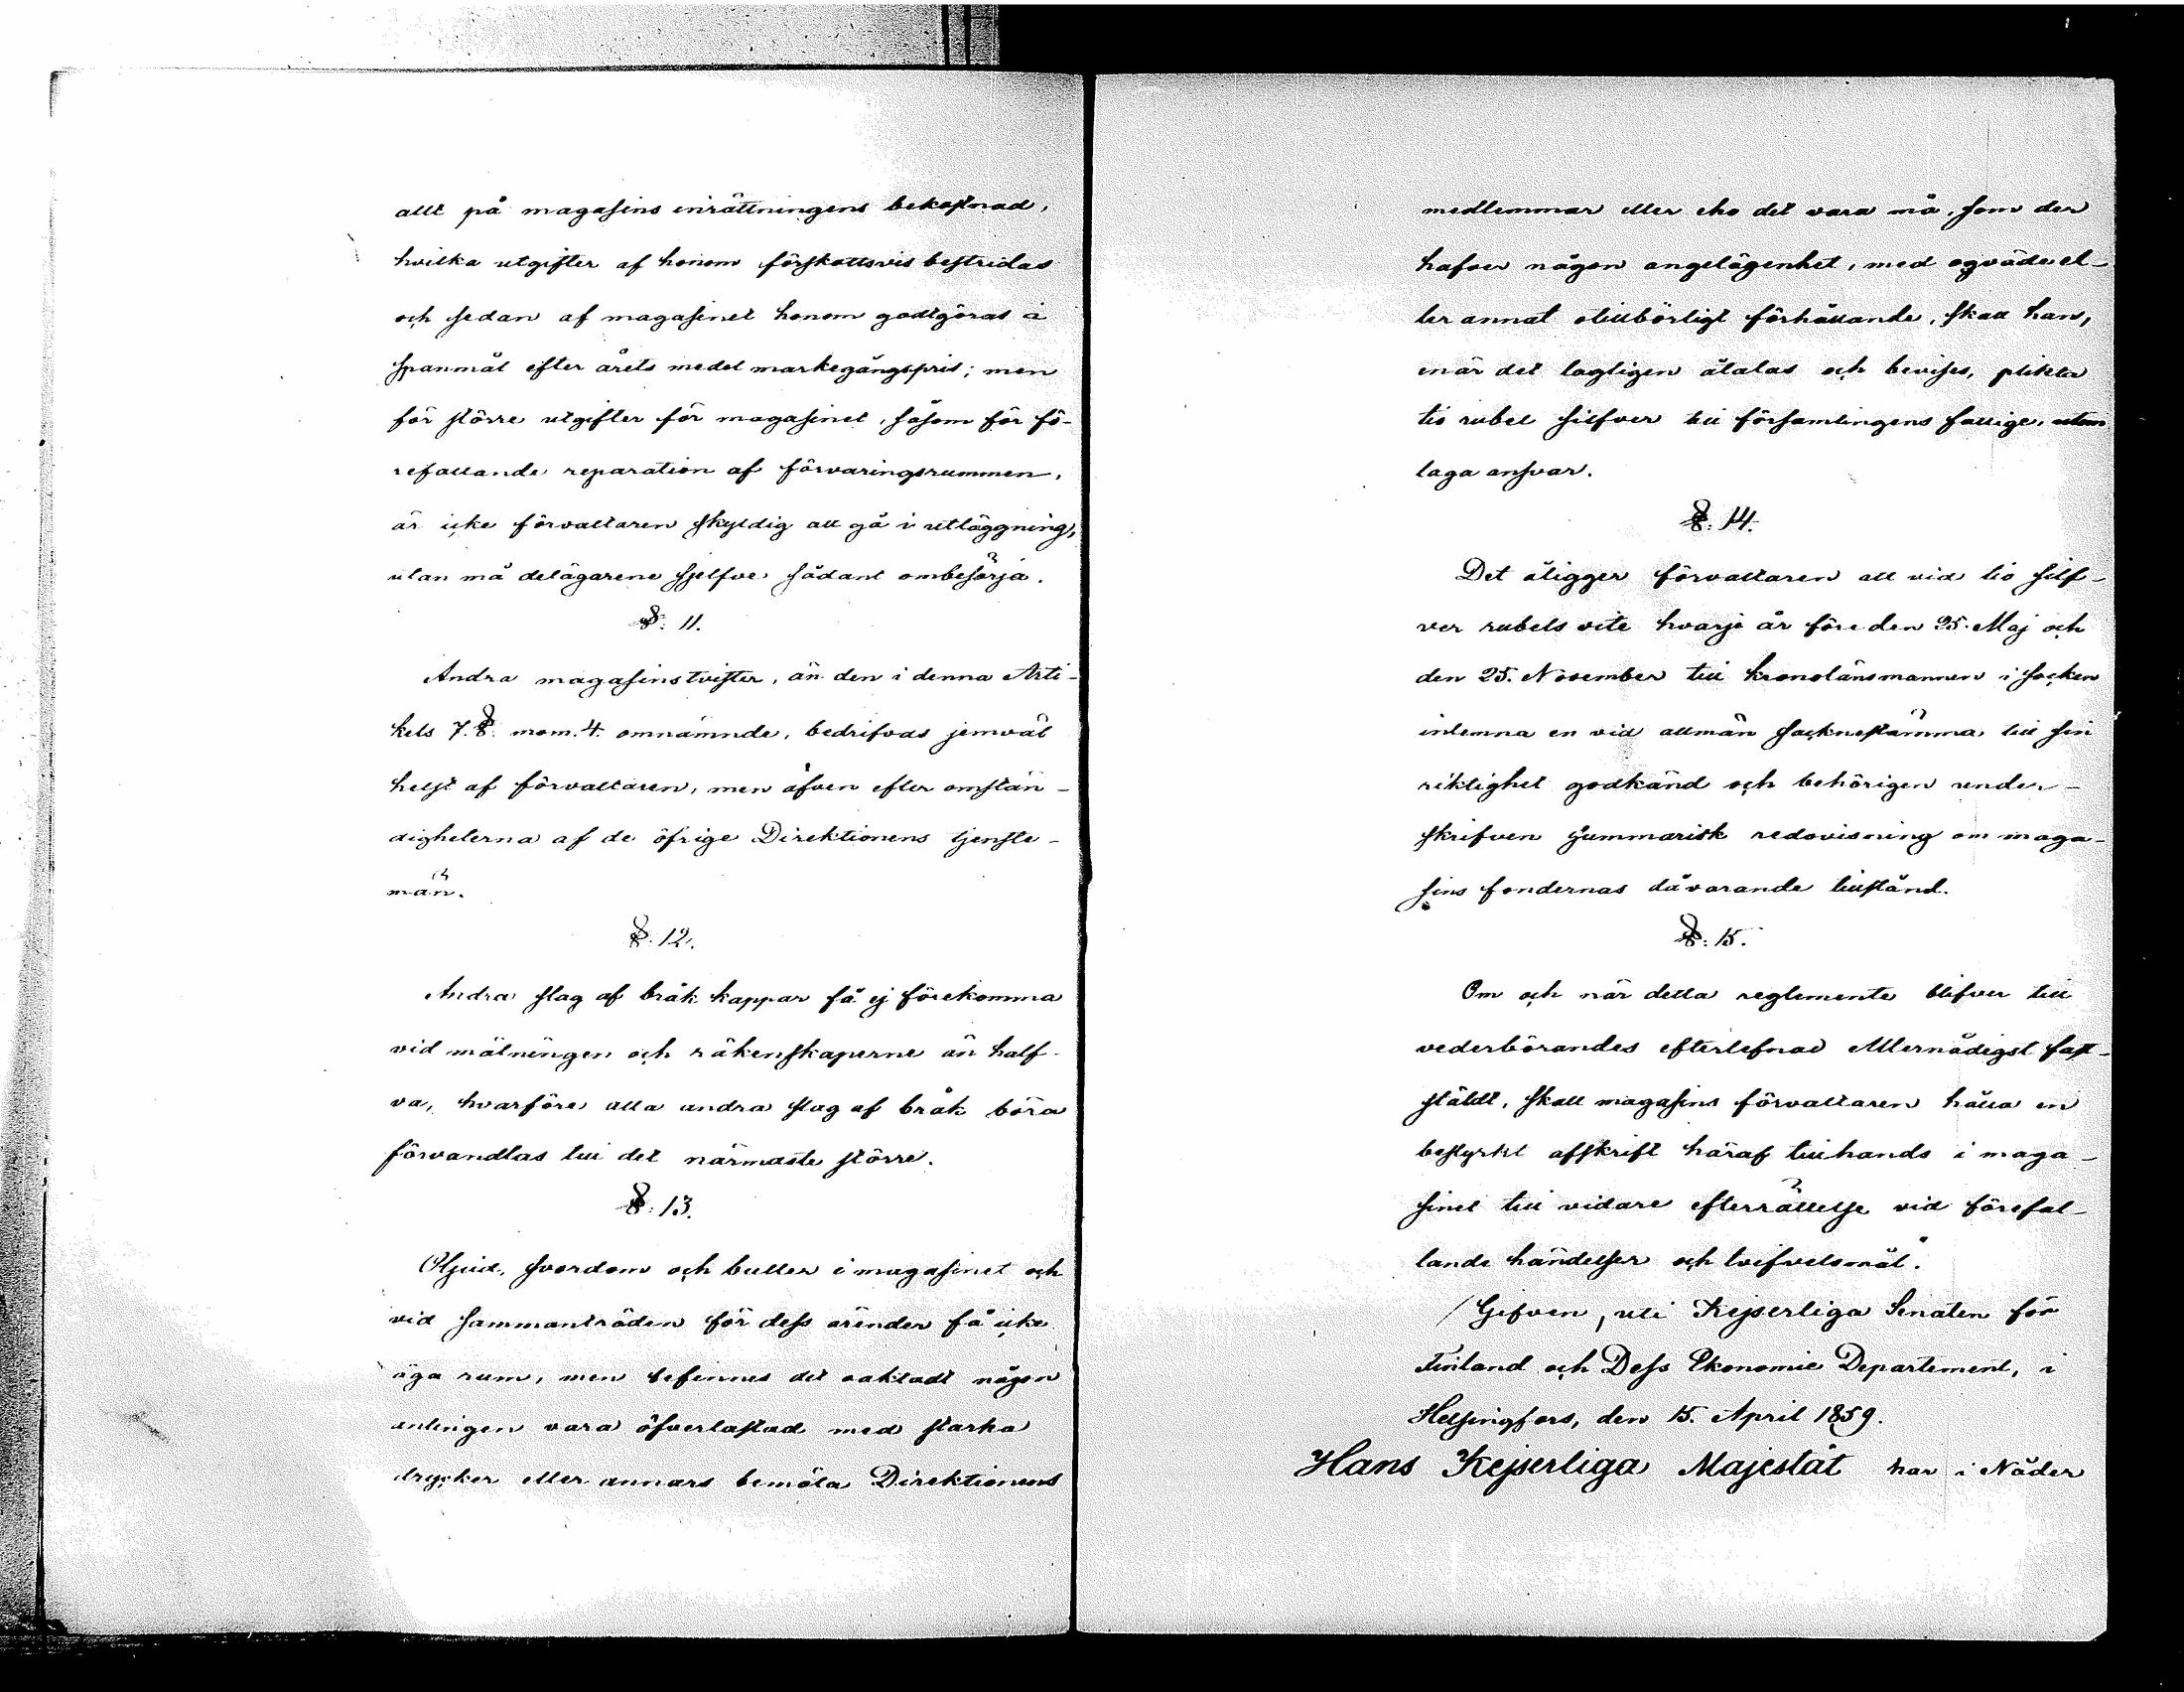 allt på magasins inrättningens bekostnad,
hvilka utgifter af honom förskottsvis bestridas
och sedan af magasinet honom godtgöras i
spanmål efter årets medel markegångspris; men
för större utgifter för magasinet, såsom för fö-
refallande reparation af förvaringsrummen,
är icke förvaltaren skyldig att gå i utläggning,
utan må delägarene sjelfve sådant ombesörja.
§. 11.
Andra magasinstvister, än den i denna Arti-
kels 7. §. mom. 4. omnämnde, bedrifvas jemväl
helst af förvaltaren, men äfven efter omstän-
digheterna af de öfrige Direktionens tjenste-
män.
§. 12.
Andra slag af bråk kappar få ej förekomma
vid mätningen och räkenskaperne än half-
va, hvarföre alla andra slag af bråk böra
förvandlas till det närmaste större.
§. 13.
Oljud, svordom och buller i magasinet och
vid sammanträden för dess ärender få icke
äga rum, men befinnes det oaktadt någon
antingen vara öfverlastad med starka
drycker eller annars bemöta Direktionens
medlemmar eller eho det vara må, som der
hafver någon angelägenhet, med oqväde el-
ler annat otillbörligt förhållande, skall han,
enär det lagligen åtalas och bevises, plikta
tio rubel silfver till församlingens fattige, utom
laga ansvar.
§. 14.
Det åligger förvaltaren att vid tio silf-
ver rubels vite hvarje år före den 25. Maj och
den 25. November till kronolänsmannen i socken
inlemna en vid allmän socknestämma till sin
riktighet godkänd och behörigen under-
skrifven summarisk redovisning om maga-
sins fondernas dåvarande tillstånd.
§. 15.
Om och när detta reglemente blifver till
vederbörandes efterlefnad Allernådigst fast-
stäldt, skall magasins förvaltaren hålla en
bestyrkt afskrift häraf tillhands i maga-
sinet till vidare efterrättelse vid förefal-
lande händelser och tvifvelsmål."
Gifven, uti Kejserliga Senaten för
Finland och Dess Ekonomie Departement, i
Helsingfors, den 15. April 1859.
Hans Kejserliga Majestät har i Nåder